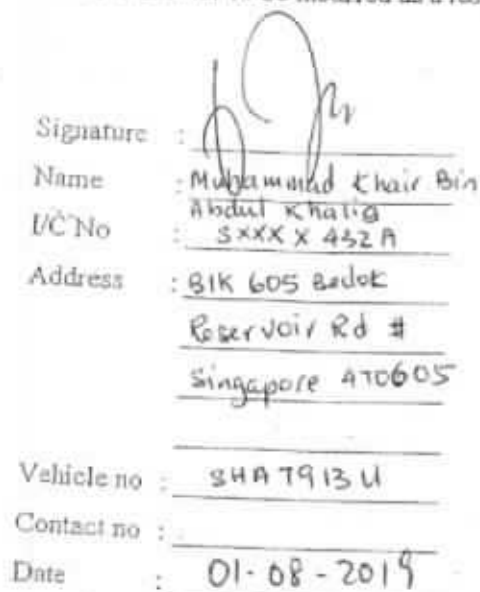 Signature :
Name : Muhammad Khair Bin
Abdul Khalig
I/C No : SXXX X 432A
Address : Blk 605 Bedok
Reservoir Rd #
Singapore 470605
Vehicle no : SHA 7913 U
Contact no :
Date : 01-08-2019